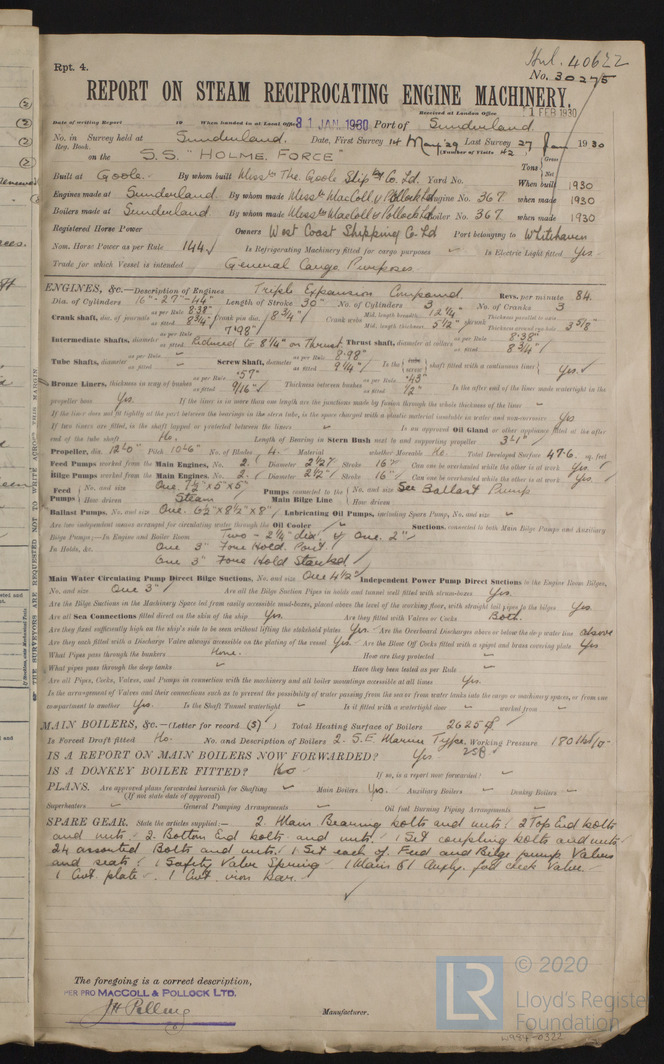 Rpt. 4.
Hul. 40622
No. 30275
REPORT ON STEAM RECIPROCATING ENGINE MACHINERY.
Received at London Office 1 FEB 1930
Date of writing Report 19 When handed in at Local Office 31 JAN. 1930 Port of Sunderland
No. in Reg. Book. Survey held at Sunderland. Date, First Survey 14 May '29 Last Survey 27 Jan 1930
(Number of Visits 42)
on the S.S. "HOLME FORCE" Tons Gross Net
Built at Goole. By whom built Messrs The Goole Ship Co. Ld. Yard No. When built 1930
Engines made at Sunderland By whom made Messrs MacColl & Pollock Ld Engine No. 367 when made 1930
Boilers made at Sunderland By whom made Messrs MacColl & Pollock Ld Boiler No. 367 when made 1930
Registered Horse Power Owners West Coast Shipping Co. Ld Port belonging to Whitehaven
Nom. Horse Power as per Rule 144 Is Refrigerating Machinery fitted for cargo purposes Is Electric Light fitted Yes.
Trade for which Vessel is intended General Cargo Purposes
ENGINES, &c.—Description of Engines Triple Expansion Compound. Revs. per minute 84.
Dia. of Cylinders 16"-27"-44" Length of Stroke 30" No. of Cylinders 3 No. of Cranks 3
Crank shaft, dia. of journals as per Rule 8.38" as fitted 8 3/4" Crank pin dia. 8 3/4" Crank webs Mid. length breadth 12 1/4" Mid. length thickness 5 1/2" shrunk Thickness parallel to axis Thickness around eye-hole 3 5/8"
Intermediate Shafts, diameter as per Rule 7.98" as fitted Reduced to 8 1/4" on Thrust Thrust shaft, diameter at collars as per Rule 8.38" as fitted 8 3/4"
Tube Shafts, diameter as per Rule as fitted Screw Shaft, diameter as per Rule 8.98" as fitted 9 1/4" Is the tube screw shaft fitted with a continuous liner Yes.
Bronze Liners, thickness in way of bushes as per Rule .57" as fitted 9/16" Thickness between bushes as per Rule .43" as fitted 1/2" Is the after end of the liner made watertight in the
propeller boss Yes. If the liner is in more than one length are the junctions made by fusion through the whole thickness of the liner
If the liner does not fit tightly at the part between the bearings in the stern tube, is the space charged with a plastic material insoluble in water and non-corrosive Yes
If two liners are fitted, is the shaft lapped or protected between the liners Is an approved Oil Gland or other appliance fitted at the after
end of the tube shaft No. Length of Bearing in Stern Bush next to and supporting propeller 3'1"
Propeller, dia. 12'0" Pitch 10'6" No. of Blades 4. Material whether Moveable No. Total Developed Surface 47.6. sq. feet
Feed Pumps worked from the Main Engines, No. 2. Diameter 2 1/2" Stroke 16" Can one be overhauled while the other is at work Yes
Bilge Pumps worked from the Main Engines, No. 2. Diameter 2 1/2" Stroke 16" Can one be overhauled while the other is at work Yes.
Feed Pumps No. and size One. 7 1/2" x 5" x 5" How driven Steam Pumps connected to the Main Bilge Line No. and size See Ballast Pump How driven
Ballast Pumps, No. and size One. 6 1/2" x 8 1/2" x 8" Lubricating Oil Pumps, including Spare Pump, No. and size
Are two independent means arranged for circulating water through the Oil Cooler Suctions, connected to both Main Bilge Pumps and Auxiliary
Bilge Pumps;—In Engine and Boiler Room Two - 2 1/4" dia. & One 2"
In Holds, &c. One 3" Fore Hold Port.
One 3" Fore Hold Starbd
Main Water Circulating Pump Direct Bilge Suctions, No. and size One 4 1/2" Independent Power Pump Direct Suctions to the Engine Room Bilges,
No. and size One 3" Are all the Bilge Suction Pipes in holds and tunnel well fitted with strum-boxes Yes.
Are the Bilge Suctions in the Machinery Space led from easily accessible mud-boxes, placed above the level of the working floor, with straight tail pipes to the bilges Yes.
Are all Sea Connections fitted direct on the skin of the ship Yes. Are they fitted with Valves or Cocks Both.
Are they fixed sufficiently high on the ship's side to be seen without lifting the stokehold plates Yes. Are the Overboard Discharges above or below the deep water line above
Are they each fitted with a Discharge Valve always accessible on the plating of the vessel Yes. Are the Blow Off Cocks fitted with a spigot and brass covering plate Yes
What Pipes pass through the bunkers None. How are they protected
What pipes pass through the deep tanks Have they been tested as per Rule
Are all Pipes, Cocks, Valves, and Pumps in connection with the machinery and all boiler mountings accessible at all times Yes.
Is the arrangement of Valves and their connections such as to prevent the possibility of water passing from the sea or from water tanks into the cargo or machinery spaces, or from one
compartment to another Yes. Is the Shaft Tunnel watertight Is it fitted with a watertight door worked from
MAIN BOILERS, &c.—(Letter for record (S)) Total Heating Surface of Boilers 2625
Is Forced Draft fitted No. No. and Description of Boilers 2. S.E. Marine Type. Working Pressure 180 lbs
IS A REPORT ON MAIN BOILERS NOW FORWARDED? Yes 2SB
IS A DONKEY BOILER FITTED? No If so, is a report now forwarded?
PLANS. Are approved plans forwarded herewith for Shafting Main Boilers Yes. Auxiliary Boilers Donkey Boilers
(If not state date of approval)
Superheaters General Pumping Arrangements Oil fuel Burning Piping Arrangements
SPARE GEAR. State the articles supplied:— 2 Main Bearing bolts and nuts. 2 Top End bolts
and nuts. 2 Bottom End bolts and nuts. 1 Set coupling bolts and nuts
24 assorted Bolts and nuts. 1 Set each of Feed and Bilge pump Valves
and seats. 1 Safety Valve Spring. 1 Main & 1 Auxly. feed check Valve.
1 Cwt plate. 1 Cwt. iron bar.
The foregoing is a correct description,
PER PRO MACCOLL & POLLOCK LTD.
Manufacturer.
OF THE SURVEYORS ARE REQUESTED NOT TO WRITE ACROSS THIS MARGIN
LR
© 2020
Lloyd's Register
Foundation
W984-0322